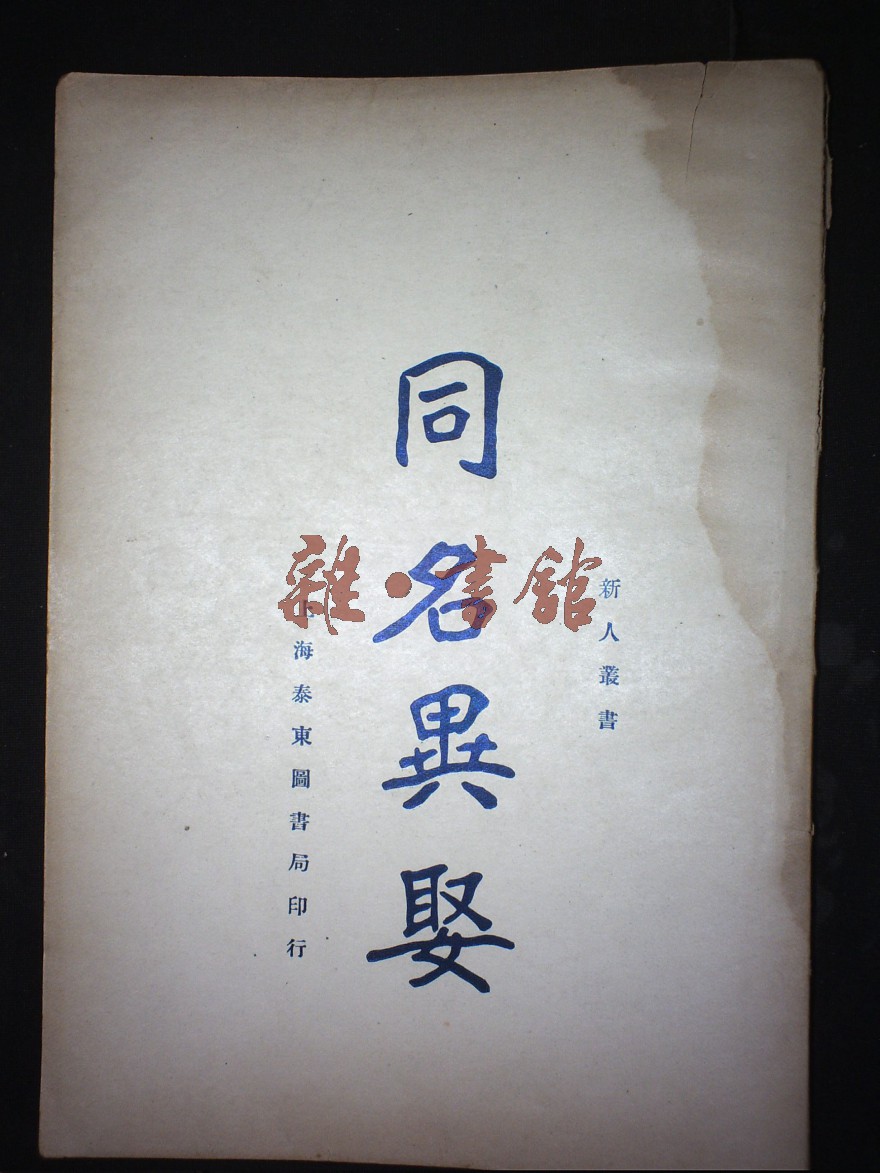 新人叢書
同名異娶
上海泰東圖書局印行
雜·書館